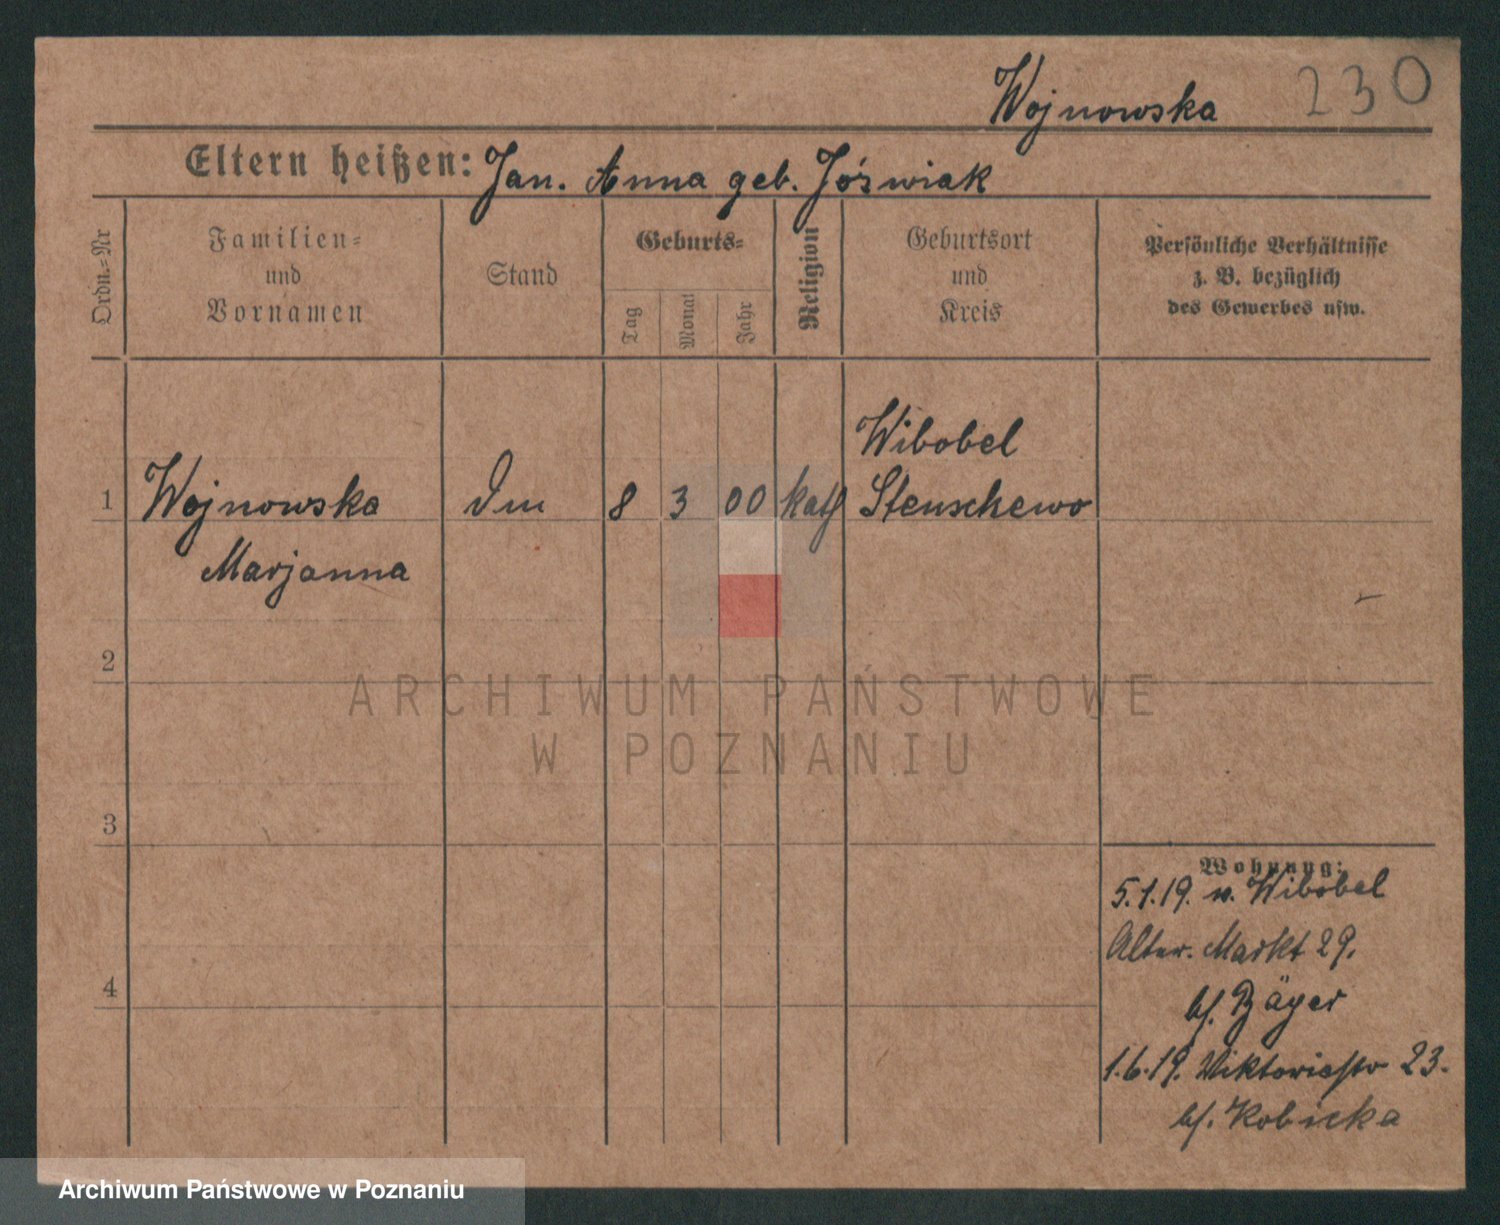 Wojnowska 230
Eltern heißen: Jan. Anna geb. Jóżwiak
Ordn.=Nr
Familien=
und
Vornamen
Stand
Geburts=
Tag
Monat
Jahr
Religion
Geburtsort
und
Kreis
Persönliche Verhältnisse
z. B. bezüglich
des Gewerbes usw.
Wibobel
1 Wojnowska 8 3 00 kath Stenschewo
Marjanna
2
ARCHIWUM PAŃSTWOWE
W POZNANIU
3
Wohnung:
5.1.19. v. Wibobel
Alter. Markt 29.
4
bs. Bäger
1.6.19. Viktoriastr 23.
bs. Kobicka
Archiwum Państwowe w Poznaniu